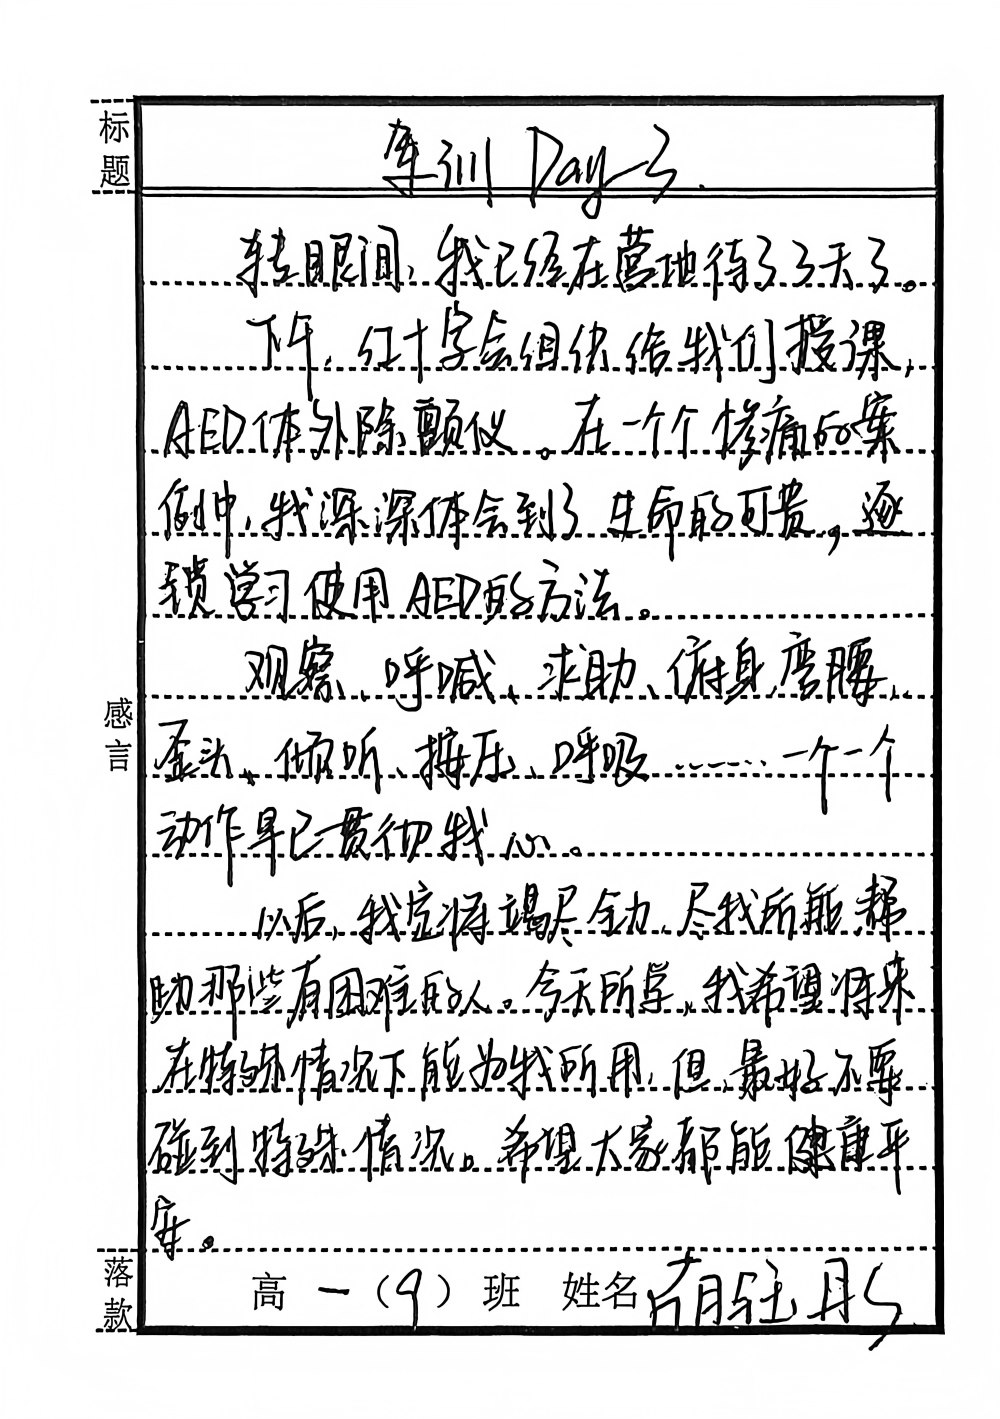 标题
军训 Day 3.
转眼间，我已经在营地待了3天了。
下午，红十字会组织给我们授课，
AED体外除颤仪。在一个个惨痛的案
例中，我深深体会到了生命的可贵，逐
锁学习使用AED的方法。
感言
观察、呼喊、求助、俯身弯腰、
歪头、倾听、按压、呼吸……一个一个
动作早已贯彻我心。
以后，我定将竭尽全力，尽我所能帮
助那些有困难的人。今天所学，我希望将来
在特殊情况下能为我所用，但，最好不要
碰到特殊情况。希望大家都能健康平
安。
落款
高一（9）班 姓名